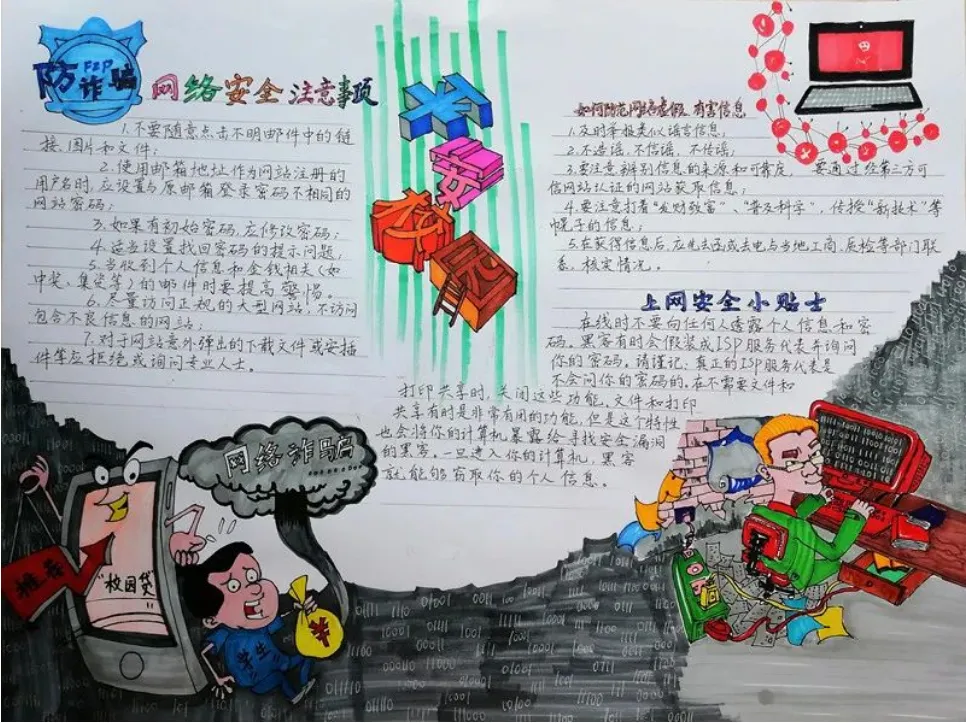 防诈骗
网络安全注意事项
1.不要随意点击不明邮件中的链
接、图片和文件;
2.使用邮箱地址作为网站注册的
用户名时,应设置与原邮箱登录密码不相同的
网站密码;
3.如果有初始密码,应修改密码;
4.适当设置找回密码的提示问题;
5.当收到个人信息和金钱相关(如
中奖、集资等)的邮件时要提高警惕。
6.尽量访问正规的大型网站,不访问
包含不良信息的网站;
7.对于网站意外弹出的下载文件或安插
件等应拒绝或询问专业人士。
如何防范网络虚假、有害信息
1.及时举报类似谣言信息;
2.不造谣,不信谣,不传谣;
3.要注意辨别信息的来源和可靠度,要通过经第三方可
信网站认证的网站获取信息;
4.要注意打着“发财致富”、“普及科学”,传授“新技术”等
幌子的信息;
5.在获得信息后,应先去函或去电与当地工商、质检等部门联
系,核实情况。
上网安全小贴士
在线时不要向任何人透露个人信息和密
码。黑客有时会假装成ISP服务代表并询问
你的密码。请谨记,真正的ISP服务代表是
不会问你的密码的。在不需要文件和
打印共享时,关闭这些功能。文件和打印
共享有时是非常有用的功能,但是这个特性
也会将你的计算机暴露给寻找安全漏洞
的黑客。一旦进入你的计算机,黑客
就能够窃取你的个人信息。
网络诈骗
推荐
“校园贷”
学生